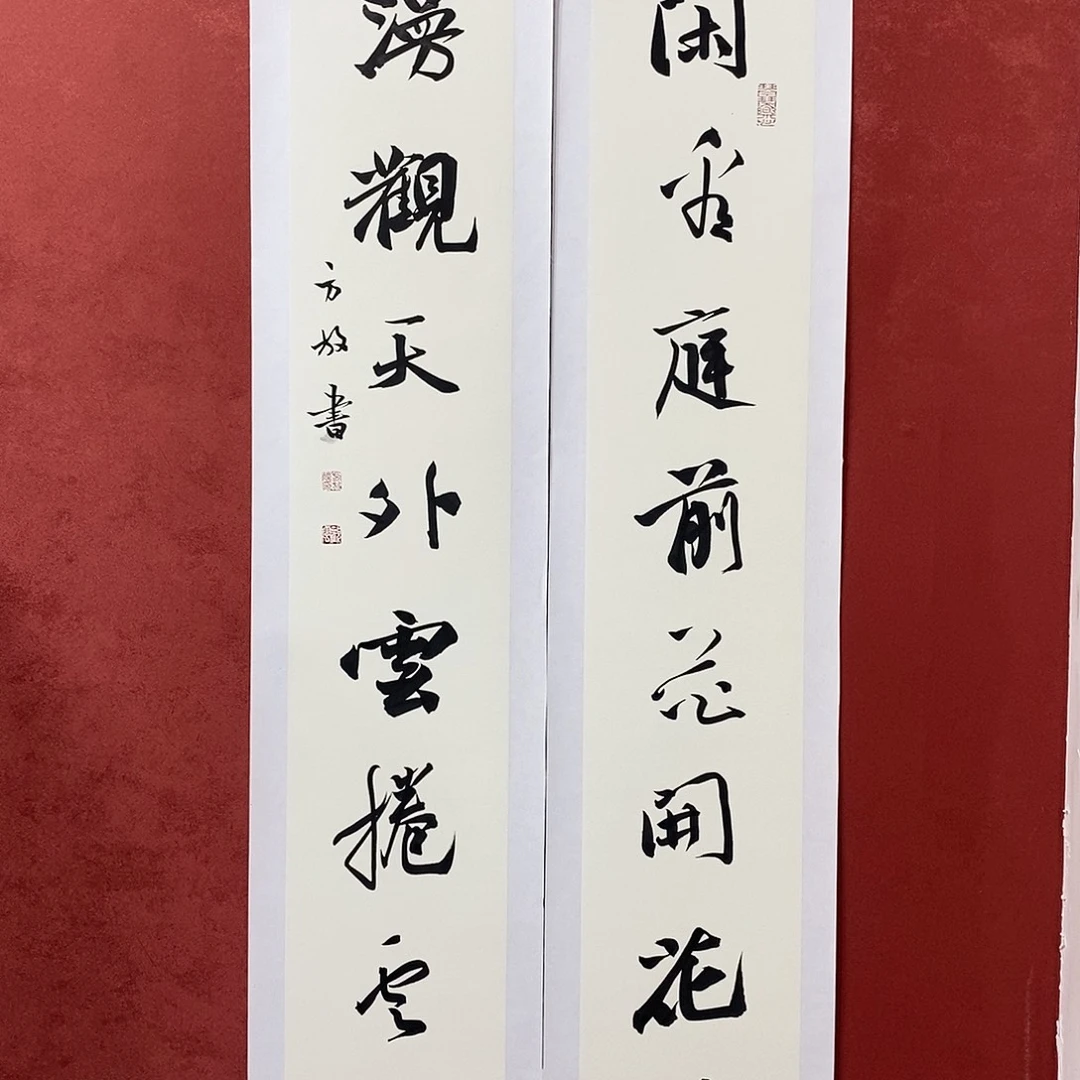 閑看庭前花開花
漫觀天外雲捲云
方 書